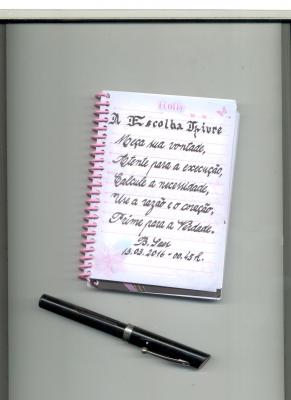 A Escolha Livre
Meça sua vontade,
Atente para a execução,
Calcule a necessidade,
Use a razão e o coração,
Prime para a Verdade.
13.03.2016 - 00.45h.